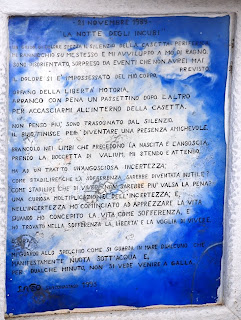 21 NOVEMBRE 1985
LA NOTTE DEGLI INCUBI
SPEZZA IL SILENZIO DELLA CASETTA
SU ME STESSO E MI AVVILUPPO A MO' DI RAGNO.
SONO DISORIENTATO, SORPRESO DA EVENTI CHE NON AVREI MAI
PREVISTO.
IL DOLORE SI È IMPOSSESSATO DEL MIO CORPO.
ORFANO DELLA LIBERTÀ MOTORIA,
ARRANCO CON PENA UN PASSETTINO DOPO L'ALTRO
PER ACCASCIARMI ALL'INTERNO DELLA CASETTA.
NON POSSO PIU' SONO TRASOGNATO DAL SILENZIO.
FINISCE PER DIVENTARE UNA PRESENZA AMICHEVOLE.
BRANCOLO NEI LIMBI CHE PRECEDONO LA NASCITA E L'ANGOSCIA,
PRENDO LA BOCCETTA DI VALIUM. MI STENDO E ATTENDO.
MA AD UN TRATTO UN'ANGOSCIOSA INCERTEZZA:
COME STABILIRE CHE LA SOFFERENZA SAREBBE DIVENTATA INUTILE?
COME STABILIRE CHE DI VIVERE NON SAREBBE PIU' VALSA LA PENA?
UNA CURIOSA MOLTIPLICAZIONE DELL'INCERTEZZA, E,
NELL'INCERTEZZA HO COMINCIATO AD APPREZZARE LA VITA
QUANDO HO CONCEPITO LA VITA COME SOFFERENZA, E
HO TROVATO NELLA SOFFERENZA LA LIBERTÀ E LA VOGLIA DI VIVERE
MI GUARDO ALLO SPECCHIO COME SI GUARDA IN MARE QUALCUNO CHE
MANIFESTAMENTE NUOTA SOTT'ACQUA E,
PER QUALCHE MINUTO, NON SI VEDE VENIRE A GALLA.
1985